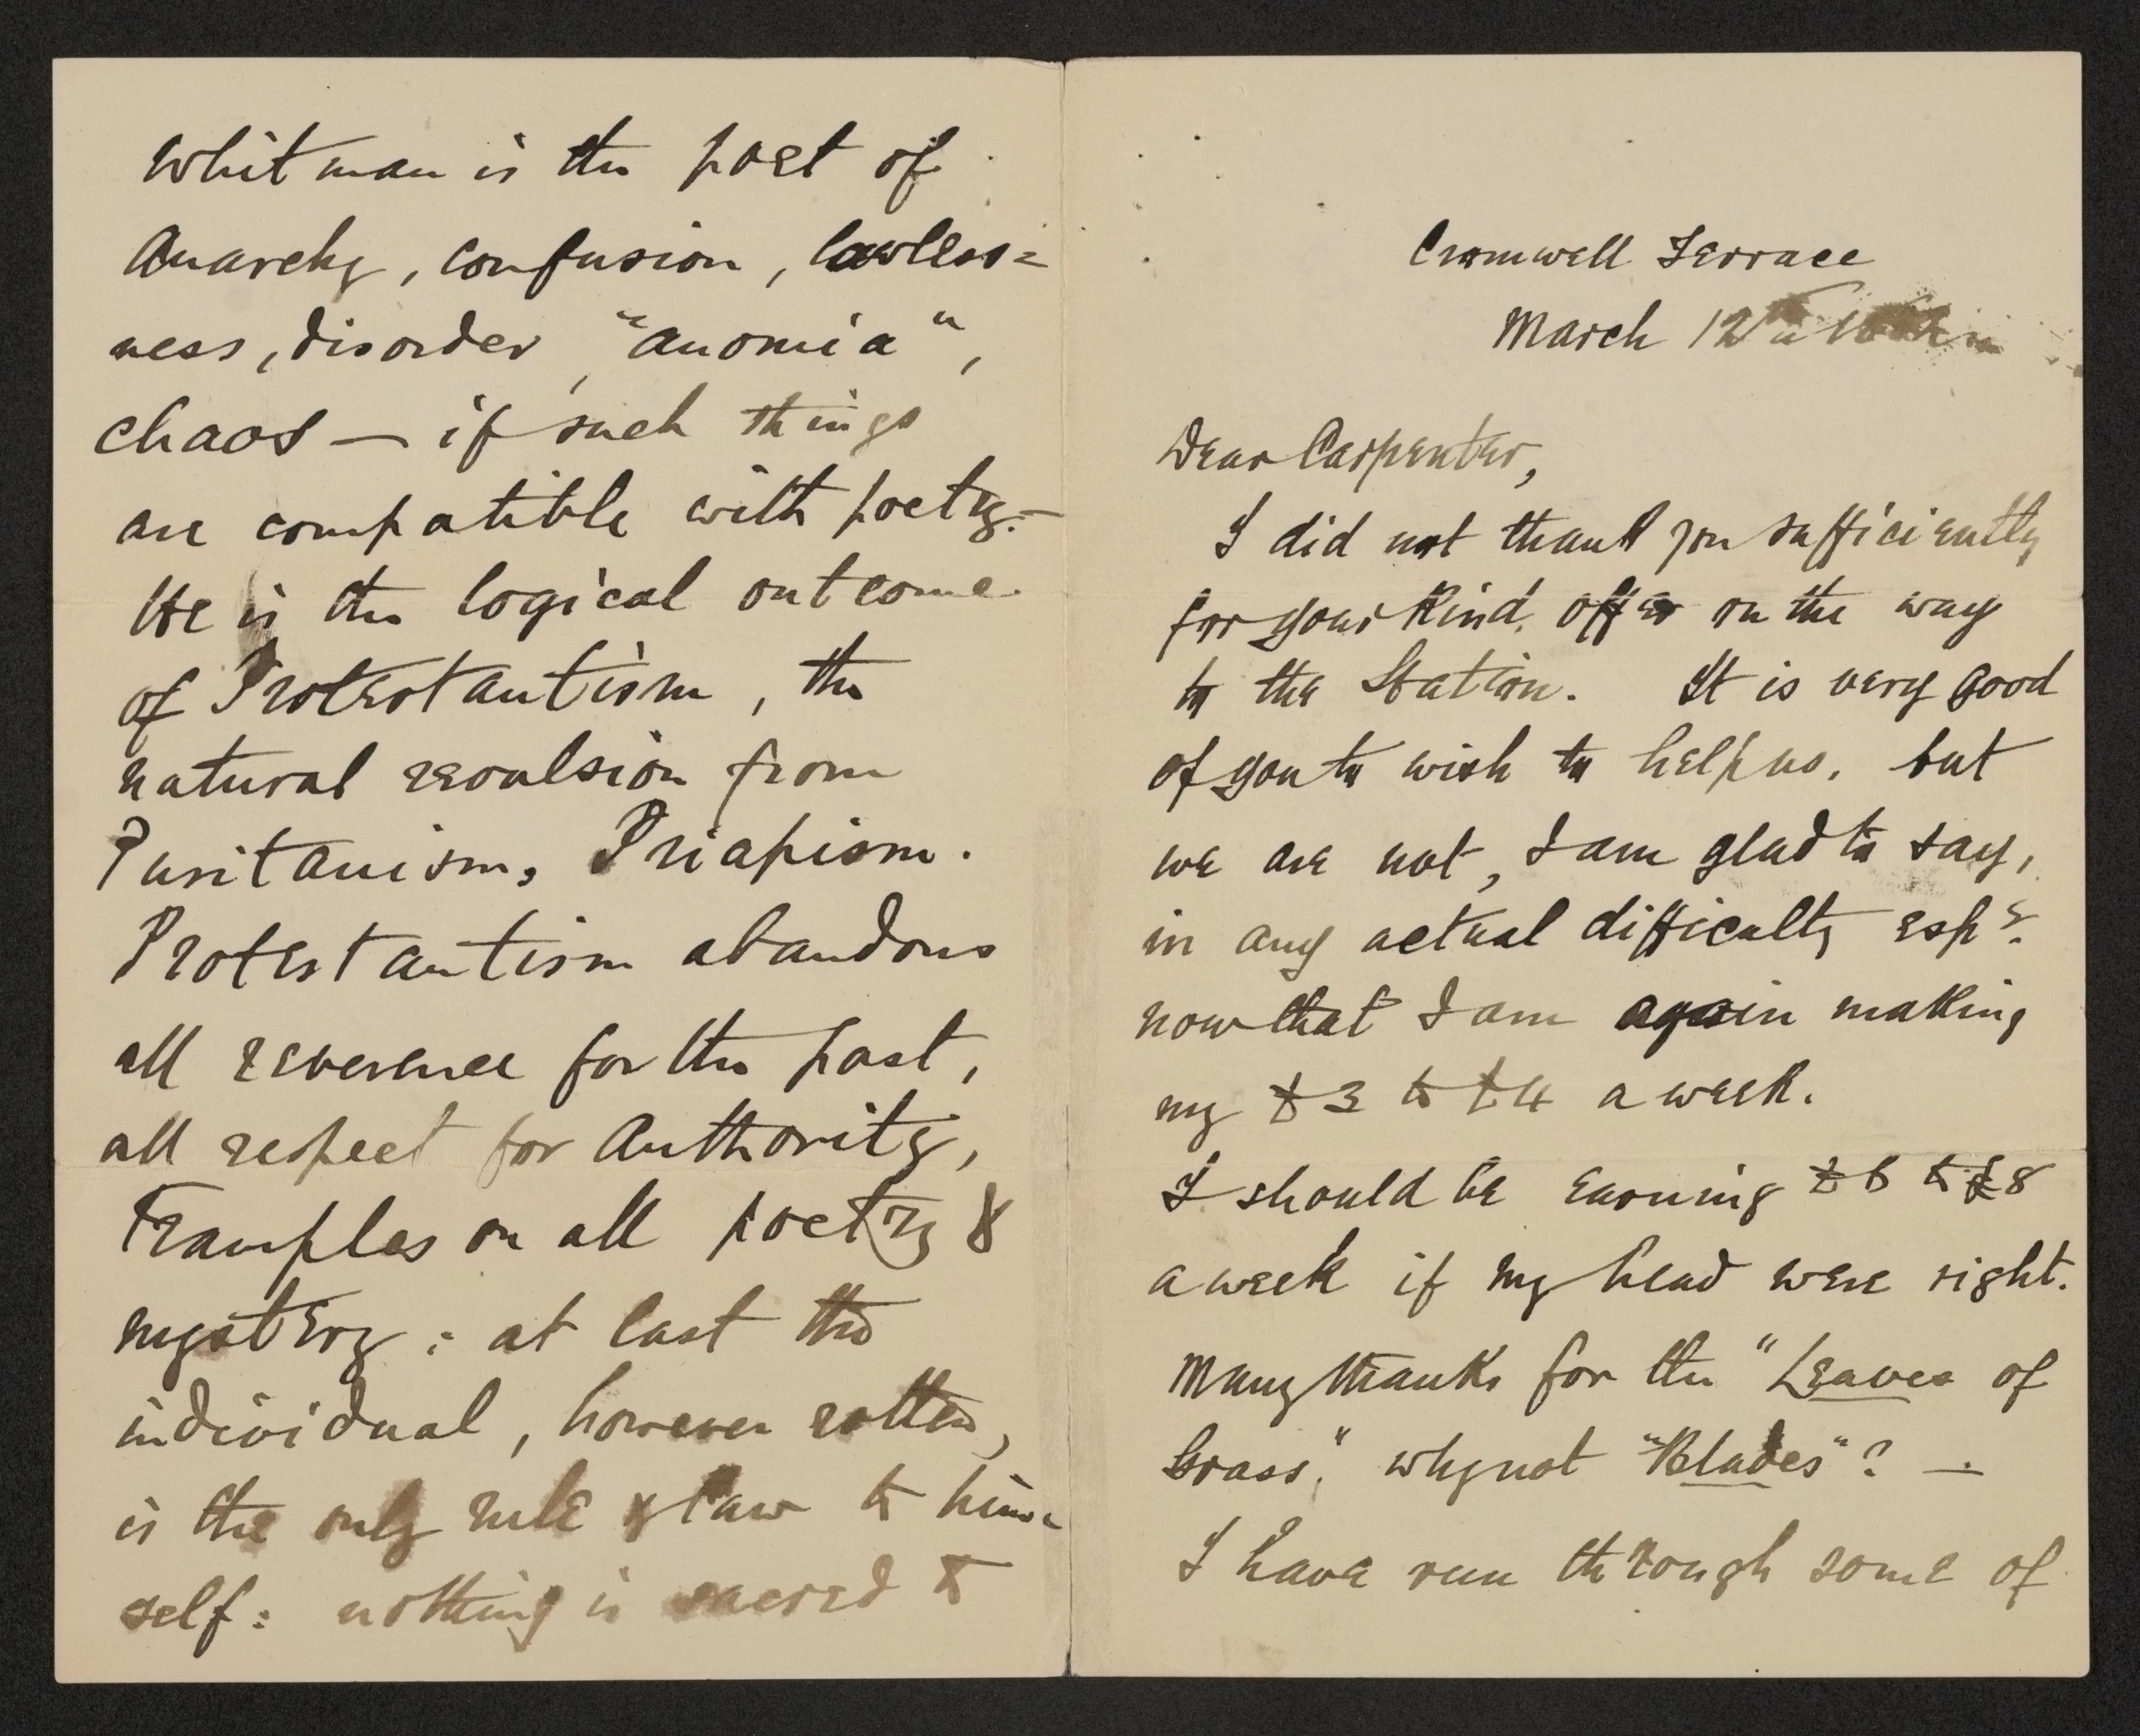 Cromwell Terrace
March 12th
Dear Carpenter,
I did not thank you sufficiently
for your kind offer on the way
to the Station. It is very good
of you to wish to help us, but
we are not, I am glad to say,
in any actual difficulty esp?
now that I am again making
my £3 to £4 a week.
I should be earning £6 to £8
a week if my head were right.
Many thanks for the "Leaves of
Grass," why not "Blades"? —
I have run through some of
Whitman is the poet of
Anarchy, confusion, lawless=
ness, disorder, "anomia",
chaos — if such things
are compatible with poetry. —
He is the logical outcome
of Protestantism, the
natural revulsion from
Puritanism, Priapism.
Protestantism abandons
all reverence for the past,
all respect for Authority,
Tramples on all poetry &
mystery: at last the
individual, however rotten,
is the only rule & law to him=
self: nothing is sacred &